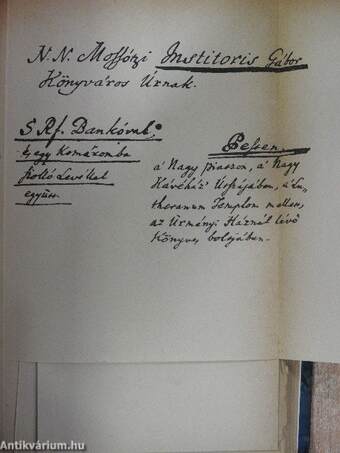 N. N. Mossótzi Institoris Gábor
Könyváros Úrnak.
5 Rf. Bankóval,
's egy Komáromba
szólló Levéllel
együtt.
Pesten.
a' Nagy piaszon, a' Nagy
Kávéház Utszájában, a' Lu-
theranum Templom mellett,
az Ürményi Háznál lévő
Könyves boltjában.
Antikvárium.hu